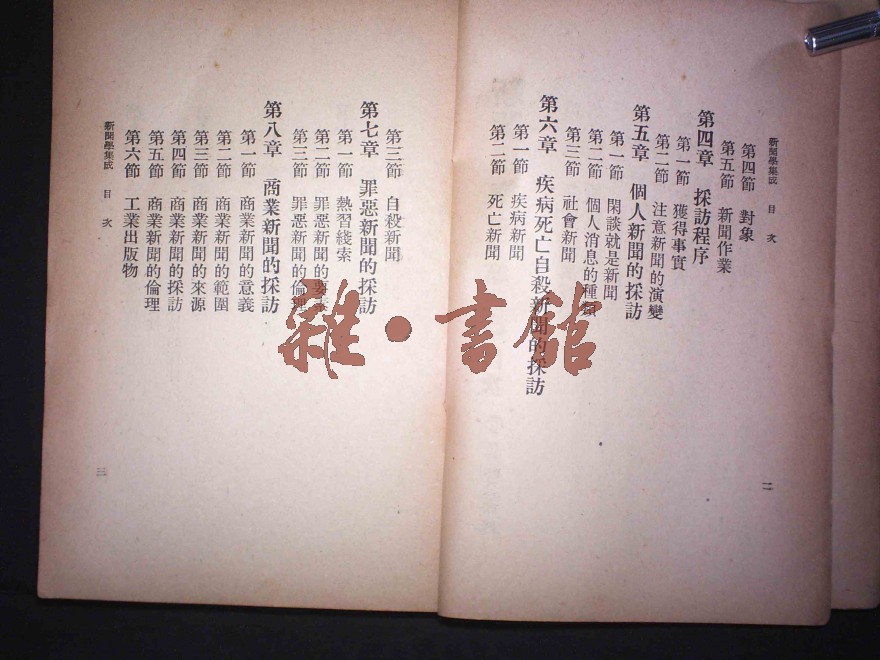 新聞學集成　目　次
第四節　對象
第五節　新聞作業
第四章　採訪程序
第一節　獲得事實
第二節　注意新聞的演變
第五章　個人新聞的採訪
第一節　閑談就是新聞
第二節　個人消息的種類
第三節　社會新聞
第六章　疾病死亡自殺新聞的採訪
第一節　疾病新聞
第二節　死亡新聞
二
新聞學集成　目　次
第三節　自殺新聞
第七章　罪惡新聞的採訪
第一節　熱習綫索
第二節　罪惡新聞的要素
第三節　罪惡新聞的倫理
第八章　商業新聞的採訪
第一節　商業新聞的意義
第二節　商業新聞的範圍
第三節　商業新聞的來源
第四節　商業新聞的採訪
第五節　商業新聞的倫理
第六節　工業出版物
三
雜·書館